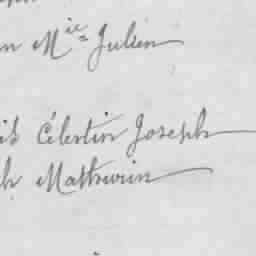 n M.ie Julien
is Célestin Joseph
h Mathurin